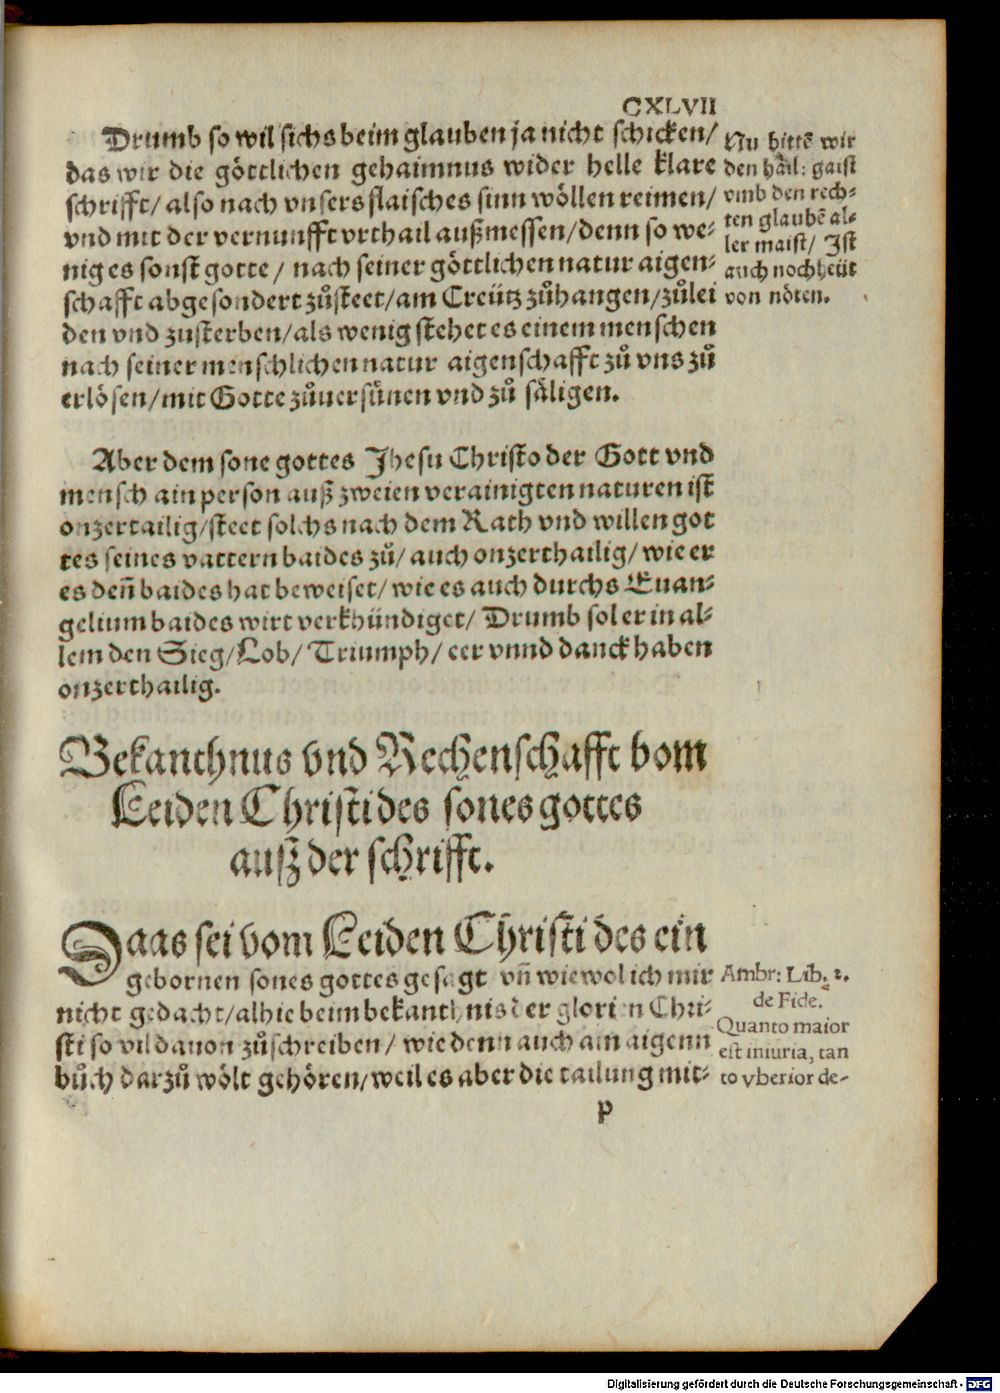 CXLVII
Drumb so wil sichs beim glauben ja nicht schicken/
das wir die göttlichen gehaimnus wider helle klare
schrifft/ also nach vnsers flaisches sinn wöllen reimen/
vnd mit der vernunfft vrthail außmessen/ denn so we⸗
nig es sonst gotte/ nach seiner göttlichen natur aigen⸗
schafft abgesondert zůsteet/ am Creütz zůhangen/ zůlei
den vnd zusterben/ als wenig stehet es einem menschen
nach seiner menschlichen natur aigenschafft zů vns zů
erlösen/ mit Gotte zůuersünen vnd zů säligen.
Nu bittẽ wir
den hail: gaist
vmb den rech⸗
ten glaubẽ al⸗
ler maist/ Ist
auch noch heüt
von nöten.
Aber dem sone gottes Jhesu Christo der Gott vnd
mensch ain person auß zweien verainigten naturen ist
onzertailig/ steet solchs nach dem Rath vnd willen got
tes seines vattern baides zů/ auch onzerthailig/ wie er
es deñ baides hat beweiset/ wie es auch durchs Euan⸗
gelium baides wirt verkhündiget/ Drumb sol er in al⸗
lem den Sieg/ Lob/ Triumph/ eer vnnd danck haben
onzerthailig.
Bekanthnus vnd Rechenschafft vom
Leiden Christi des sones gottes
auß der schrifft.
Daas sei vom Leiden Christi des ein
gebornen sones gottes gesagt vñ wiewol ich mir
nicht gedacht/ alhie beim bekanthnis der glorien Chri⸗
sti so vil dauon zůschreiben/ wie denn auch ain aigenn
bůch darzů wölt gehören/ weil es aber die tailung mit⸗
Ambr: Lib. 2.
de Fide.
Quanto maior
est iniuria, tan
to vberior de-
p
Digitalisierung gefördert durch die Deutsche Forschungsgemeinschaft - DFG